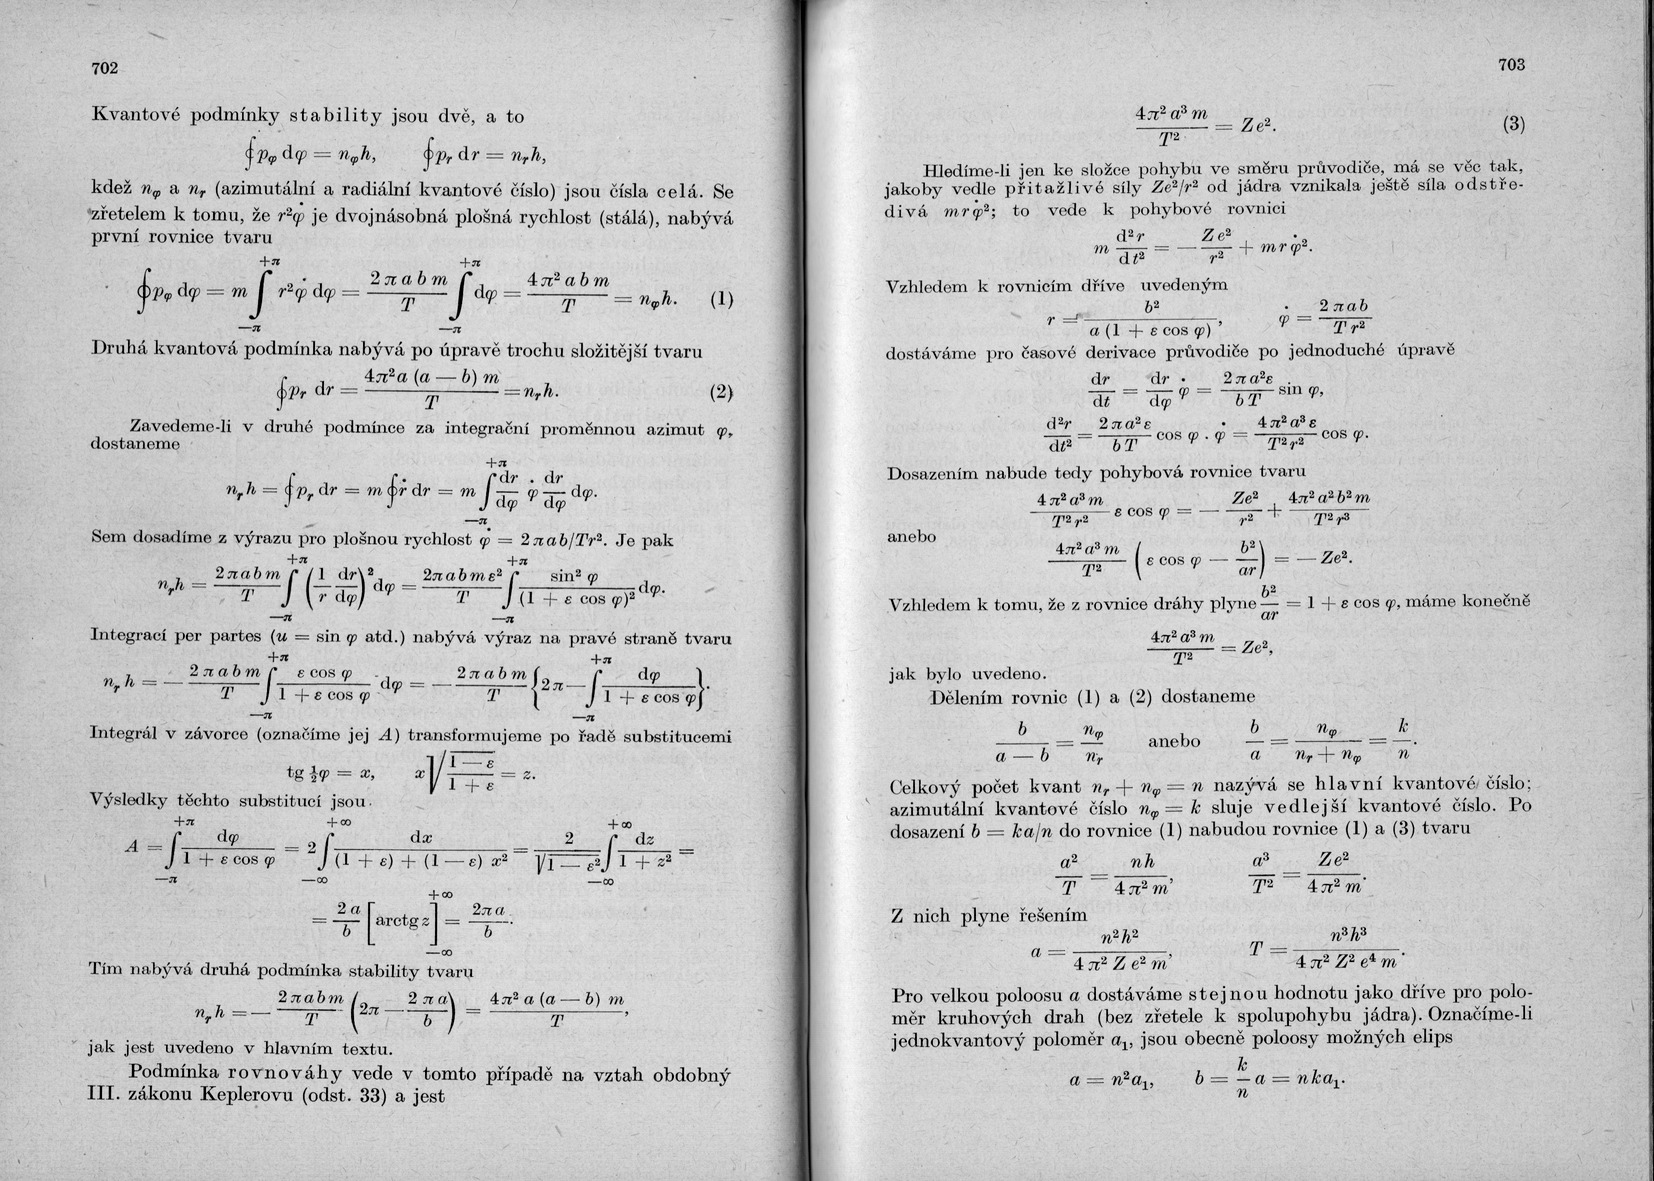 702
Kvantové podmínky stability jsou dvě, a to
∮p_φ dφ = n_φh, ∮p_r dr = n_rh,
kdež n_φ a n_r (azimutální a radiální kvantové číslo) jsou čísla celá. Se
zřetelem k tomu, že r²φ̇ je dvojnásobná plošná rychlost (stálá), nabývá
první rovnice tvaru
∮p_φ dφ = m ∫_{—π}^{+π} r²φ̇ dφ = \frac{2πabm}{T} ∫_{—π}^{+π} dφ = \frac{4π²abm}{T} = n_φh. (1)
Druhá kvantová podmínka nabývá po úpravě trochu složitější tvaru
∮p_r dr = \frac{4π²a (a — b) m}{T} = n_rh. (2)
Zavedeme-li v druhé podmínce za integrační proměnnou azimut φ,
dostaneme
n_rh = ∮p_r dr = m∮ṙ dr = m ∫_{—π}^{+π} \frac{dr}{dφ} φ̇ \frac{dr}{dφ} dφ.
Sem dosadíme z výrazu pro plošnou rychlost φ̇ = 2πab/Tr². Je pak
n_rh = \frac{2πabm}{T} ∫_{—π}^{+π} (\frac{1}{r} \frac{dr}{dφ})² dφ = \frac{2πabmε²}{T} ∫_{—π}^{+π} \frac{sin² φ}{(1 + ε cos φ)²} dφ.
Integrací per partes (u = sin φ atd.) nabývá výraz na pravé straně tvaru
n_r h = — \frac{2πabm}{T} ∫_{—π}^{+π} \frac{ε cos φ}{1 + ε cos φ} dφ = — \frac{2πabm}{T} {2π — ∫_{—π}^{+π} \frac{dφ}{1 + ε cos φ}}.
Integrál v závorce (označíme jej A) transformujeme po řadě substitucemi
tg ½φ = x, x√\frac{1 — ε}{1 + ε} = z.
Výsledky těchto substitucí jsou
A = ∫_{—π}^{+π} \frac{dφ}{1 + ε cos φ} = 2 ∫_{—∞}^{+∞} \frac{dx}{(1 + ε) + (1 — ε) x²} = \frac{2}{√(1 — ε²)} ∫_{—∞}^{+∞} \frac{dz}{1 + z²} =
= \frac{2a}{b} [arctg z]_{—∞}^{+∞} = \frac{2πa}{b}.
Tím nabývá druhá podmínka stability tvaru
n_r h = — \frac{2πabm}{T} (2π — \frac{2πa}{b}) = \frac{4π² a (a — b) m}{T},
jak jest uvedeno v hlavním textu.
Podmínka rovnováhy vede v tomto případě na vztah obdobný
III. zákonu Keplerovu (odst. 33) a jest
703
\frac{4π² a³ m}{T²} = Ze². (3)
Hledíme-li jen ke složce pohybu ve směru průvodiče, má se věc tak,
jakoby vedle přitažlivé síly Ze²/r² od jádra vznikala ještě síla odstře-
divá mrφ̇²; to vede k pohybové rovnici
m \frac{d²r}{dt²} = — \frac{Ze²}{r²} + mrφ̇².
Vzhledem k rovnicím dříve uvedeným
r = \frac{b²}{a (1 + ε cos φ)}, φ̇ = \frac{2πab}{Tr²}
dostáváme pro časové derivace průvodiče po jednoduché úpravě
\frac{dr}{dt} = \frac{dr}{dφ} φ̇ = \frac{2πa²ε}{bT} sin φ,
\frac{d²r}{dt²} = \frac{2πa²ε}{bT} cos φ . φ̇ = \frac{4π²a³ε}{T²r²} cos φ.
Dosazením nabude tedy pohybová rovnice tvaru
\frac{4π²a³m}{T²r²} ε cos φ = — \frac{Ze²}{r²} + \frac{4π²a²b²m}{T²r³}
anebo
\frac{4π²a³m}{T²} (ε cos φ — \frac{b²}{ar}) = — Ze².
Vzhledem k tomu, že z rovnice dráhy plyne \frac{b²}{ar} = 1 + ε cos φ, máme konečně
\frac{4π²a³m}{T²} = Ze²,
jak bylo uvedeno.
Dělením rovnic (1) a (2) dostaneme
\frac{b}{a — b} = \frac{n_φ}{n_r} anebo \frac{b}{a} = \frac{n_φ}{n_r + n_φ} = \frac{k}{n}.
Celkový počet kvant n_r + n_φ = n nazývá se hlavní kvantové číslo;
azimutální kvantové číslo n_φ = k sluje vedlejší kvantové číslo. Po
dosazení b = ka/n do rovnice (1) nabudou rovnice (1) a (3) tvaru
\frac{a²}{T} = \frac{nh}{4π² m}, \frac{a³}{T²} = \frac{Ze²}{4π² m}.
Z nich plyne řešením
a = \frac{n²h²}{4π² Z e² m}, T = \frac{n³h³}{4π² Z² e⁴ m}.
Pro velkou poloosu a dostáváme stejnou hodnotu jako dříve pro polo-
měr kruhových drah (bez zřetele k spolupohybu jádra). Označíme-li
jednokvantový poloměr a₁, jsou obecně poloosy možných elips
a = n²a₁, b = \frac{k}{n} a = nka₁.